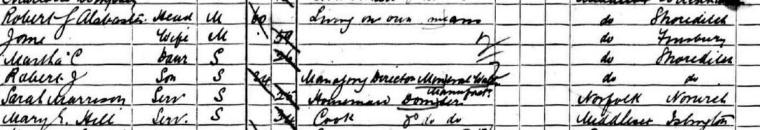 Robert J Alabaster Head M 60 Living on own means do Shoreditch
Jane Wife M 59 do Finsbury
Martha C Daur S do Shoreditch
Robert J Son S 24 Managing Director Mineral Water Manufact. do do
Sarah Harrison Serv. S Housemaid Domestic Norfolk Norwich
Mary E. Hill Serv. S Cook do do Middlesex Islington